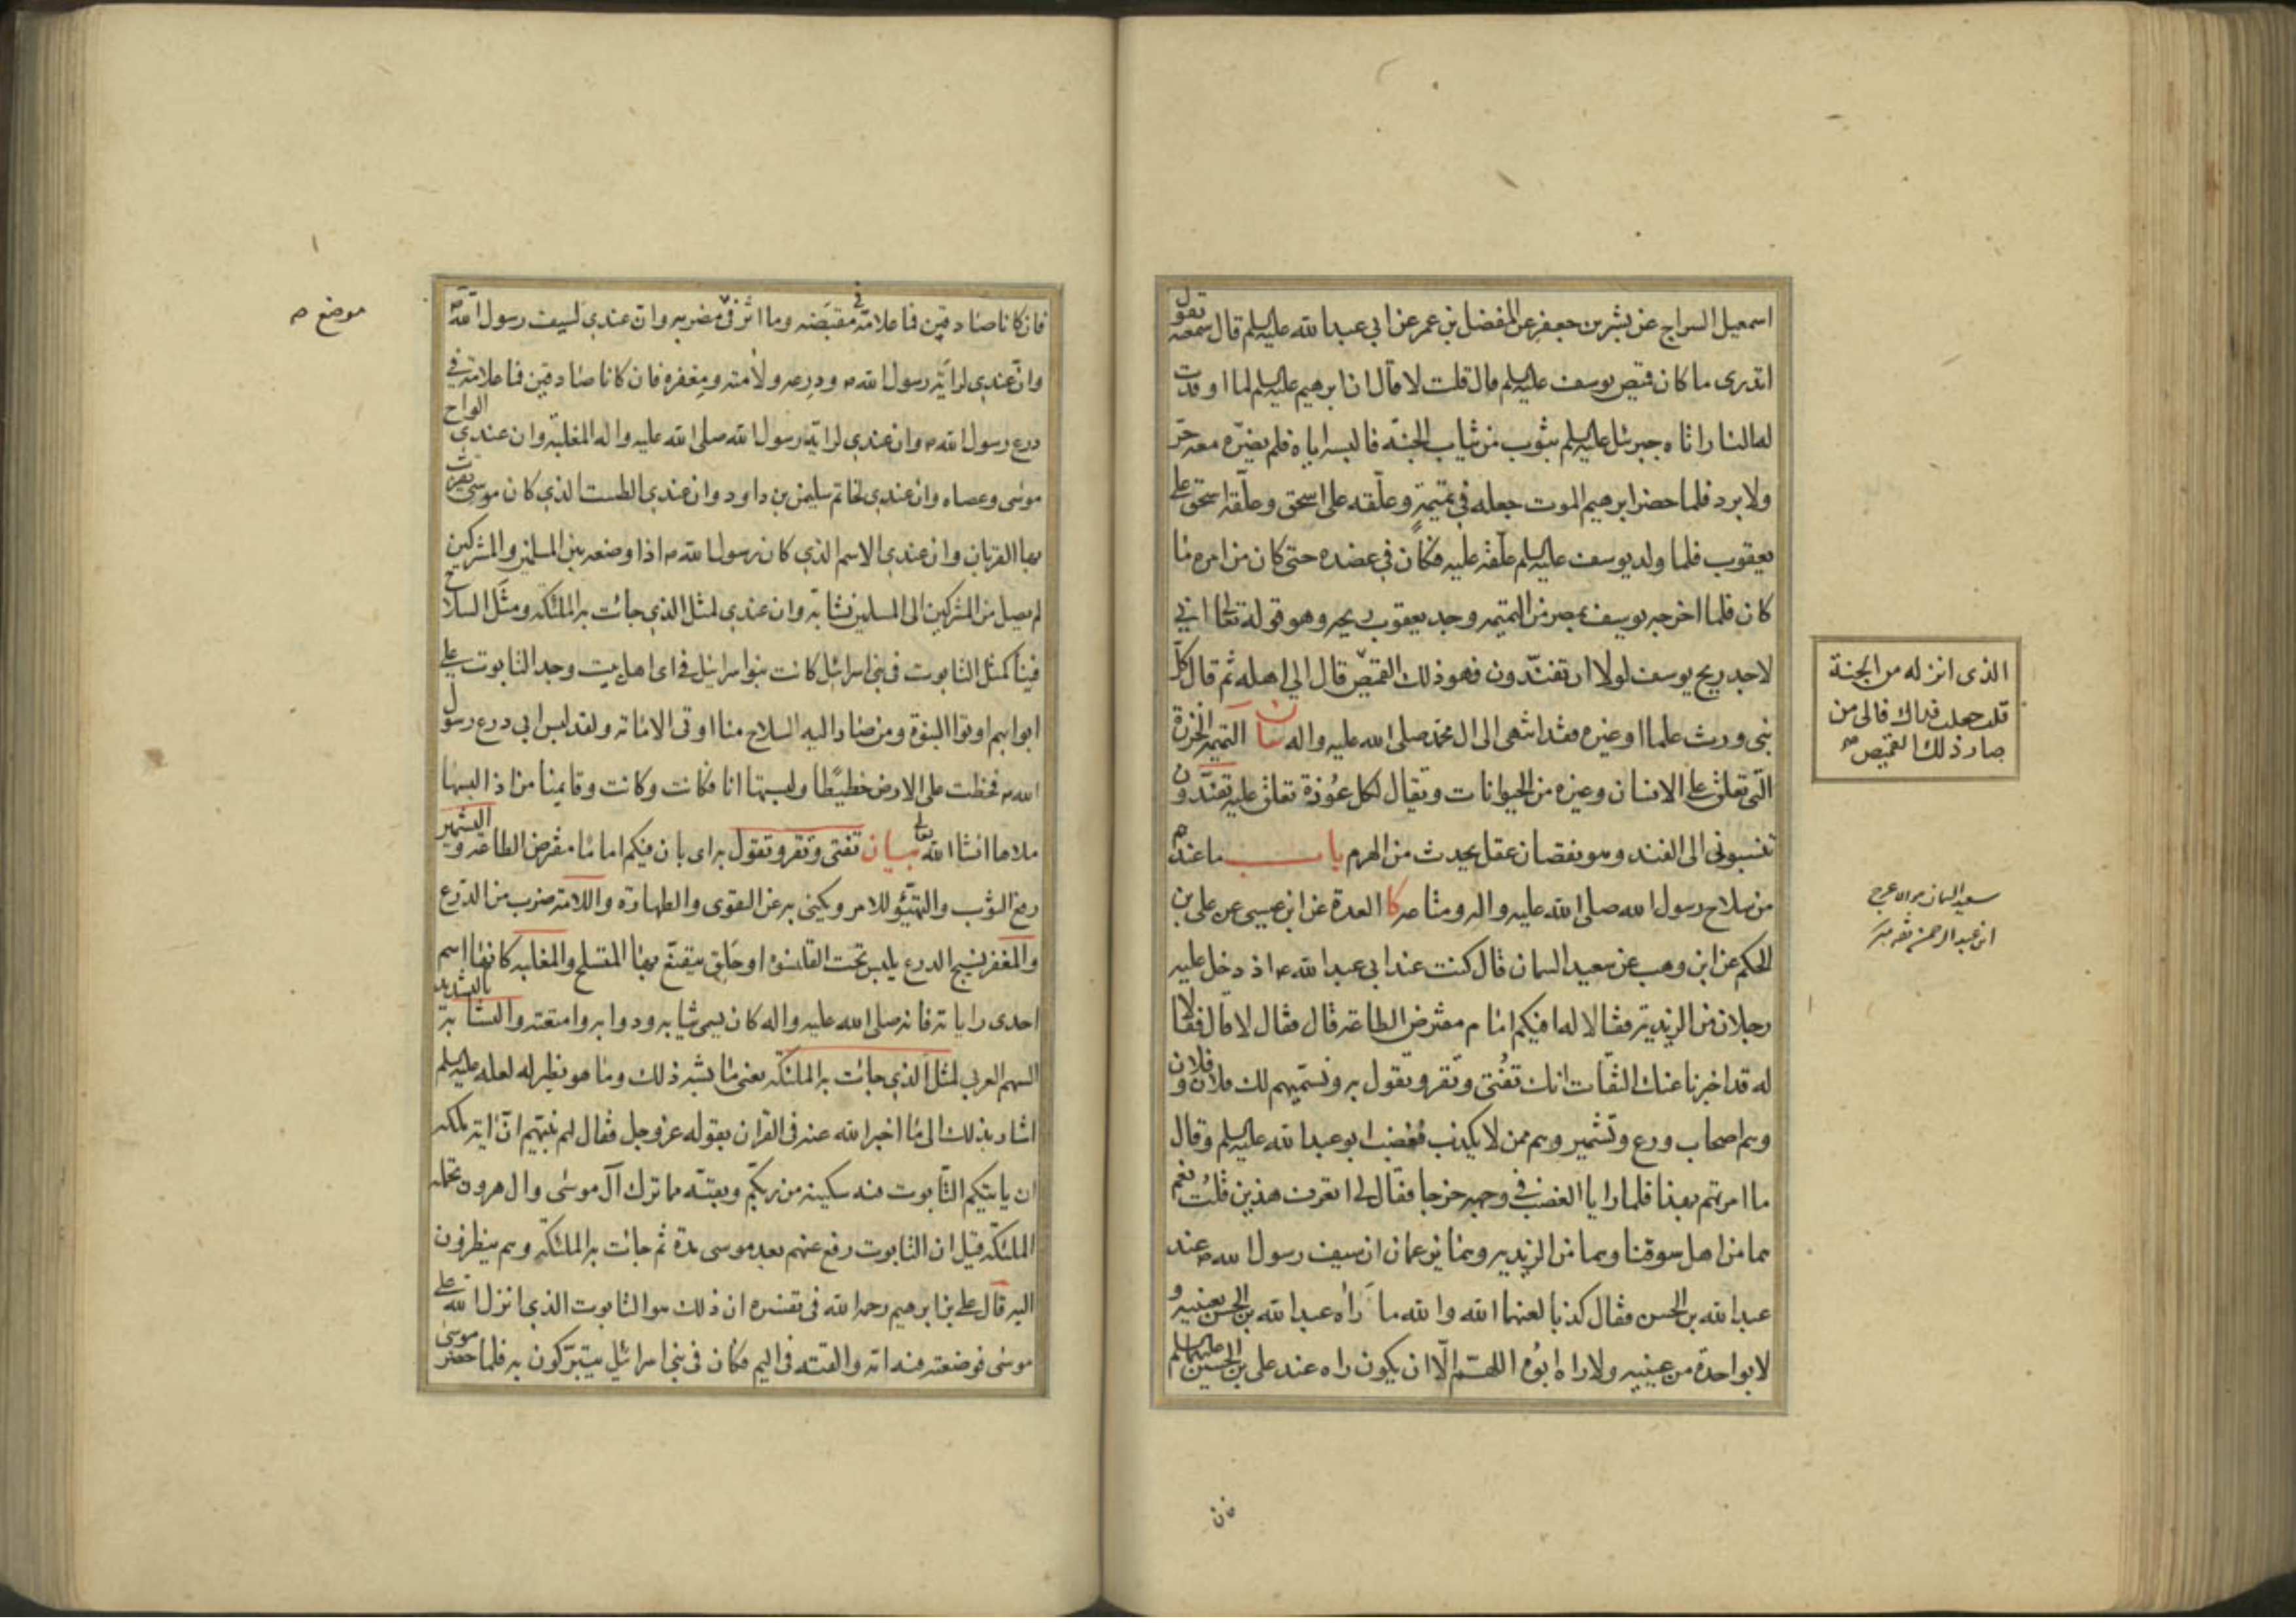 اسمعيل السراج عن بشر بن جعفر عن المفضل بن عمر عن ابي عبدا لله عليه السلم قال سمعته يقول
اتدرى ما كان قميص يوسف عليه السلم قال قلت لا قال ان ابرهيم عليه السلم لما اوقدت
له النار اتاه جبرئيل عليه السلم بثوب من ثياب الجنة فالبسه اياه فلم يضره معه حر
ولا برد فلما حضر ابرهيم الموت جعله في تميمة وعلقه على اسحق وعلقه اسحق على
يعقوب فلما ولد يوسف عليه السلم علقه عليه فكان في عضده حتى كان من امره ما
كان فلما اخرجه يوسف بمصر من التميمه وجد يعقوب ريحه وهو قوله تعالى اني
لاجد ريح يوسف لولا ان تفندون فهو ذلك القميص قال الى اهله ثم قال كل
نبى ورث علما او غيره فقد انتهى الى ال محمد صلى الله عليه واله بيان التميمة الخرزة
التى تعلق على الانسان وغيره من الحيوانات ويقال لكل عوذة تعلق عليه تفندون
تنسبونى الى الفند وهو نقصان عقل يحدث من الهرم باب ما عندهم
من سلاح رسول الله صلى الله عليه واله ومتاعه كا العدة عن ابن عيسى عن على بن
الحكم عن ابن وهب عن سعيد السمان قال كنت عند ابى عبدا لله ع اذ دخل عليه
رجلان من الزيدية فقالا له افيكم امام مفترض الطاعة قال فقال لا قال فقالا
له قد اخبرنا عنك الثقات انك تفتى وتقر وتقول به ونسميهم لك فلان وفلان
وهم اصحاب ورع وتشمير وهم ممن لا يكذب فغضب ابو عبدا لله عليه السلم وقال
ما امرتهم بهذا فلما رايا الغضب في وجهه خرجا فقال لى اتعرف هذين قلت نعم
هما من اهل سوقنا وهما من الزيدية وهما يزعمان ان سيف رسول الله ص عند
عبدا لله بن الحسن فقال كذبا لعنهما الله والله ما رآه عبدا لله بن الحسن بعينيه و
لا بواحدة من عينيه ولا راه ابوه اللهم الا ان يكون راه عند على بن الحسين عليهما السلم
الذى انزل له من الجنة
قلت جعلت فداك فالى من
صار ذلك القميص صح
سعيد السمان هو ابن
ابن عبد الرحمن ثقة
فان كانا صادقين فما علامة في مقبضه وما اثر في مضربه وان عندى لسيف رسول الله ص
وان عندى لراية رسول الله ص ودرعه ولأمته ومغفره فان كانا صادقين فما علامة في
درع رسول الله ص وان عندى لراية رسول الله صلى الله عليه واله المغلبة وان عندى الواح
موسى وعصاه وان عندى لخاتم سليمن بن داود وان عندى الطست الذي كان موسى يقرب
بها القربان وان عندى الاسم الذي كان رسول الله ص اذا وضعه بين المسلمين والمشركين
لم يصل من المشركين الى المسلمين نشابة وان عندى لمثل الذي جائت به الملئكة ومثل السلاح
فينا كمثل التابوت في بنى اسرائيل كانت بنو اسرائيل في اى اهل بيت وجد التابوت على
ابوابهم اوتوا النبوة ومن صار اليه السلاح منا اوتى الامامة ولقد لبس ابى درع رسول
الله ص فخطت على الارض خطيطا ولبستها انا فكانت وكانت وقايمنا من اذا لبسها
ملاها انشاء الله تعالى بيان تفتى وتقر وتقول به اى بان فيكم اماما مفترض الطاعة والتشمير
رفع الثوب والتهيؤ للامر ويكنى به عن التقوى والطهارة واللامة ضرب من الدرع
والمغفر نسيج الدرع يلبس تحت القلنسوة او حلق يتقنع بها المتسلح والمغلبة كانها اسم
احدى راياته فانه صلى الله عليه واله كان يسمى ثيابه ودوابه وامتعته والنشابة بالتشديد
السهم العربى لمثل الذي جائت به الملئكة يعنى ما يشبه ذلك وما هو نظير له لعله عليه السلم
اشار بذلك الى ما اخبر الله عنه في القران بقوله عز وجل فقال لهم نبيهم ان اية ملكه
ان ياتيكم التابوت فيه سكينة من ربكم وبقية مما ترك آل موسى وال هرون تحمله
الملئكة قيل ان التابوت رفع عنهم بعد موسى مدة ثم جائت به الملئكة وهم ينظرون
اليه قال على بن ابرهيم رحمه الله في تفسيره ان ذلك هو التابوت الذي انزل الله على
موسى فوضعته فيه امه والقته في اليم فكان في بنى اسرائيل يتبركون به فلما حضر موسى
موضع ص